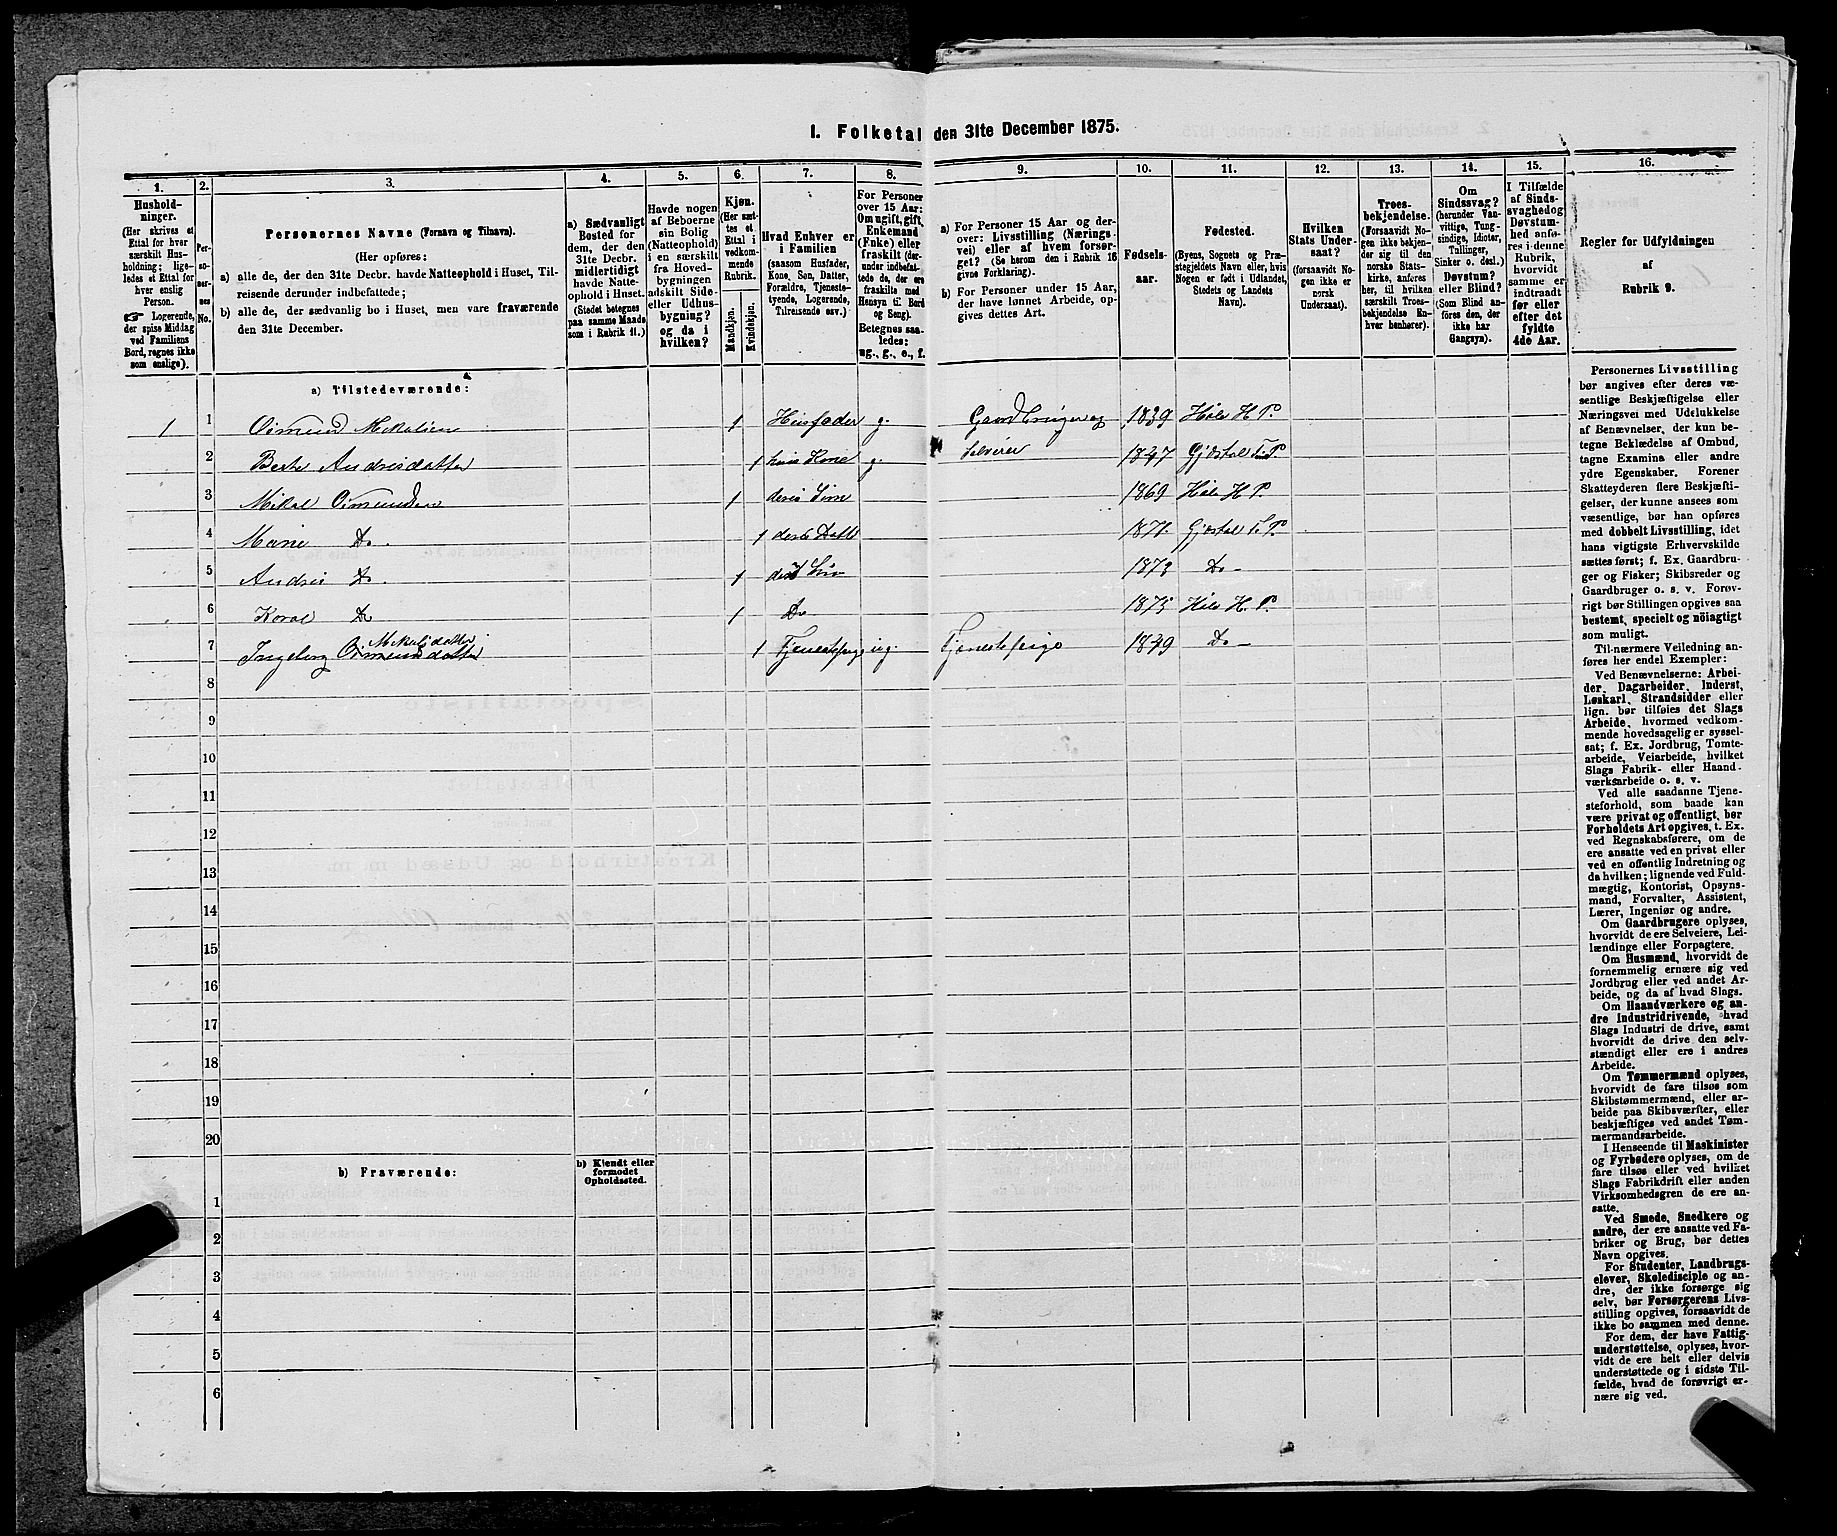 1. Folketal den 31te December 1875.
1.
Hushold-
ninger.
(Her skrives et
Ettal for hver
særskilt Hus-
holdning; lige-
ledes et Ettal for
hver enslig
Person.
☞ Logerende,
der spise Middag
ved Familiens
Bord, regnes ikke
som enslige).
2.
Per-
so-
ner-
nes
No.
3.
Personernes Navne (Fornavn og Tilnavn).
(Her opføres:
a) alle de, der den 31te Decbr. havde Natteophold i Huset, Til-
reisende derunder indbefattede;
b) alle de, der sædvanlig bo i Huset, men vare fraværende
den 31te December.
4.
a) Sædvanligt
Bosted for
dem, der den
31te Decbr.
midlertidigt
havde Natte-
ophold i Huset.
(Stedet betegnes
paa samme Maade
som i Rubrik 11.)
5.
Havde nogen
af Beboerne
sin Bolig
(Natteophold)
i en særskilt
fra Hoved-
bygningen
adskilt Side-
eller Udhus-
bygning?
og da i
hvilken?
6.
Kjøn.
(Her sæt-
tes et
Ettal i
vedkom-
mende
Rubrik.
Mandkjøn.
Kvindekjøn.
7.
Hvad Enhver er
i Familien
(saasom Husfader,
Kone, Søn, Datter,
Forældre, Tjeneste-
tyende, Logerende,
Tilreisende osv.)
8.
For Personer
over 15 Aar:
Om ugift, gift,
Enkemand
(Enke) eller
fraskilt (der-
under indbefat-
tede de, der ere
fraskilte med
Hensyn til Bord
og Seng).
Betegnes saa-
ledes:
ug., g., e., f.
9.
a) For Personer 15 Aar og der-
over: Livsstilling (Nærings-
vei) eller af hvem forsør-
get? (Se herom den i Rubrik 16
givne Forklaring).
b) For Personer under 15 Aar,
der have lønnet Arbeide, op-
gives dettes Art.
10.
Fødsels-
aar.
11.
Fødested.
(Byens, Sognets og Præ-
stegjeldets Navn eller, hvis
Nogen er født i Udlandet,
Stedets og Landets
Navn).
12.
Hvilken
Stats Under-
saat?
(forsaavidt No-
gen ikke er
norsk
Undersaat).
13.
Troes-
bekjendelse.
(Forsaavidt No-
gen ikke bekjen-
der sig til den
norske Stats-
kirke, anføres
her, til hvilken
særskilt Troes-
bekjendelse En-
hver henhører).
14.
Om
Sindssvag?
(herunder Van-
vittige, Tung-
sindige, Idioter,
Tullinger,
Sinker o. desl.)
Døvstum?
eller Blind?
(Som Blind an-
føres den, der
ikke har
Gangsyn).
15.
I Tilfælde
af Sinds-
svaghed og
Døvstum-
hed anfø-
res i denne
Rubrik,
hvorvidt
samme er
indtraadt
før eller
efter det
fyldte
4de Aar.
16.
Regler for Udfyldningen
af
Rubrik 9.
a) Tilstedeværende:
1 1 Osmund Mikalsen 1 Husfader g. Gaardbruger og 1839 Høle H. P.
2 Berte Andrisdatter 1 hans Kone g. Selveier 1847 Gjæstal P.
3 Mikal Osmundsen 1 deres Søn 1869 Høle H P.
4 Marie Do. 1 deres Datt 1871. Gjæstal P.
5 Andris Do. 1 deres Søn 1873 Do -
6 Do 1 Do 1875 Høle H. P.
Mikalsdatter
7 Ingeborg Osmundsdatter 1 Tjenestepige ug. Tjenestepige 1849 Do -
8
9
10
11
12
13
14
15
16
17
18
19
20
b) Fraværende:
b) Kjendt eller
formodet
Opholdssted.
1
2
3
4
5
6
Personernes Livsstilling
bør angives efter deres væ-
sentlige Beskjæftigelse eller
Næringsvei med Udelukkelse
af Benævnelser, der kun be-
tegne Beklædelse af Ombud,
tagne Examina eller andre
ydre Egenskaber. Forener
Skatteyderen flere Beskjæfti-
gelser, der kunne ansees som
væsentlige, bør han opføres
med dobbelt Livsstilling, idet
hans vigtigste Erhvervskilde
sættes først; f. Ex. Gaardbru-
ger og Fisker; Skibsreder og
Gaardbruger o. s. v. Forøv-
rigt bør Stillingen opgives saa
bestemt, specielt og nøiagtigt
som muligt.
Til nærmere Veiledning an-
føres her endel Exempler:
Ved Benævnelserne: Arbei-
der, Dagarbeider, Inderst,
Løskarl, Strandsidder eller
lign. bør tilføies det Slags
Arbeide, hvormed vedkom-
mende hovedsagelig er syssel-
sat; f. Ex. Jordbrug, Tomte-
arbeide, Veiarbeide, hvilket
Slags Fabrik- eller Haand-
værksarbeide o. s. v.
Ved alle saadanne Tjene-
steforhold, som baade kan
være privat og offentligt, bør
Forholdets Art opgives, t. Ex.
ved Regnskabsførere, om de
ere ansatte ved en privat eller
ved en offentlig Indretning og
da hvilken; lignende ved Fuld-
mægtig, Kontorist, Opsyns-
mand, Forvalter, Assistent,
Lærer, Ingeniør og andre.
Om Gaardbrugere oplyses,
hvorvidt de ere Selveiere, Lei-
lændinge eller Forpagtere.
Om Husmænd, hvorvidt de
fornemmelig ernære sig ved
Jordbrug eller ved andet Ar-
beide, og da af hvad Slags.
Om Haandværkere og an-
dre Industridrivende, hvad
Slags Industri de drive, samt
hvorvidt de drive den selv-
stændigt eller ere i andres
Arbeide.
Om Tømmermænd oplyses,
hvorvidt de fare tilsøs som
Skibstømmermænd, eller ar-
beide paa Skibsværfter, eller
beskjæftiges ved andet Tøm-
mermandsarbeide.
I Henseende til Maskinister
og Fyrbødere oplyses, om de
fare tilsøs eller ved hvilket
Slags Fabrikdrift eller anden
Virksomhedsgren de ere an-
satte.
Ved Smede, Snedkere og
andre, der ere ansatte ved Fa-
briker og Brug, bør dettes
Navn opgives.
For Studenter, Landbrugs-
elever, Skoledisciple og an-
dre, der ikke forsørge sig
selv, bør Forsørgerens Livs-
stilling opgives, forsaavidt de
ikke bo sammen med denne.
For dem, der have Fattig-
understøttelse, oplyses, hvor-
vidt de ere helt eller delvis
understøttede og i sidste Til-
fælde, hvad de forøvrigt er-
nære sig ved.